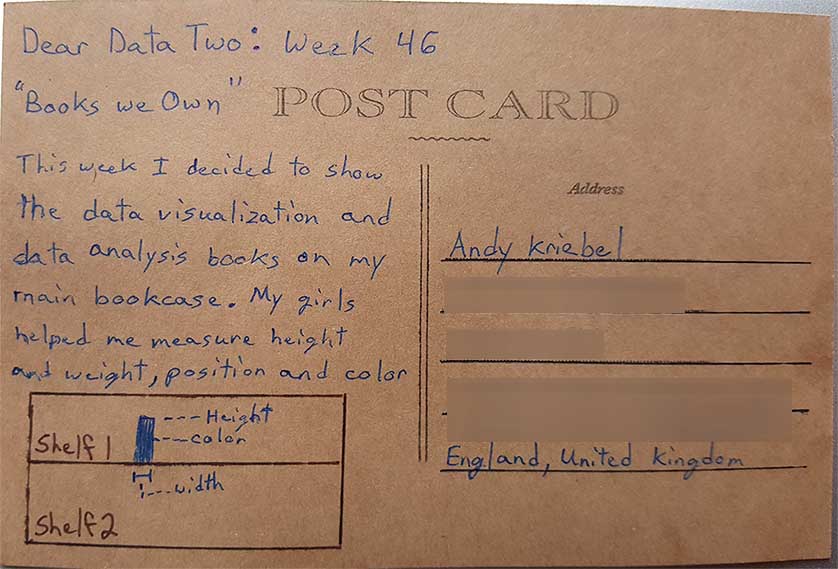 Dear Data Two: Week 46
"Books we Own"
POST CARD
This week I decided to show
the data visualization and
data analysis books on my
main bookcase. My girls
helped me measure height
and weight, position and color
Shelf 1
Height
color
width
Shelf 2
Address
Andy Kriebel
England, United Kingdom